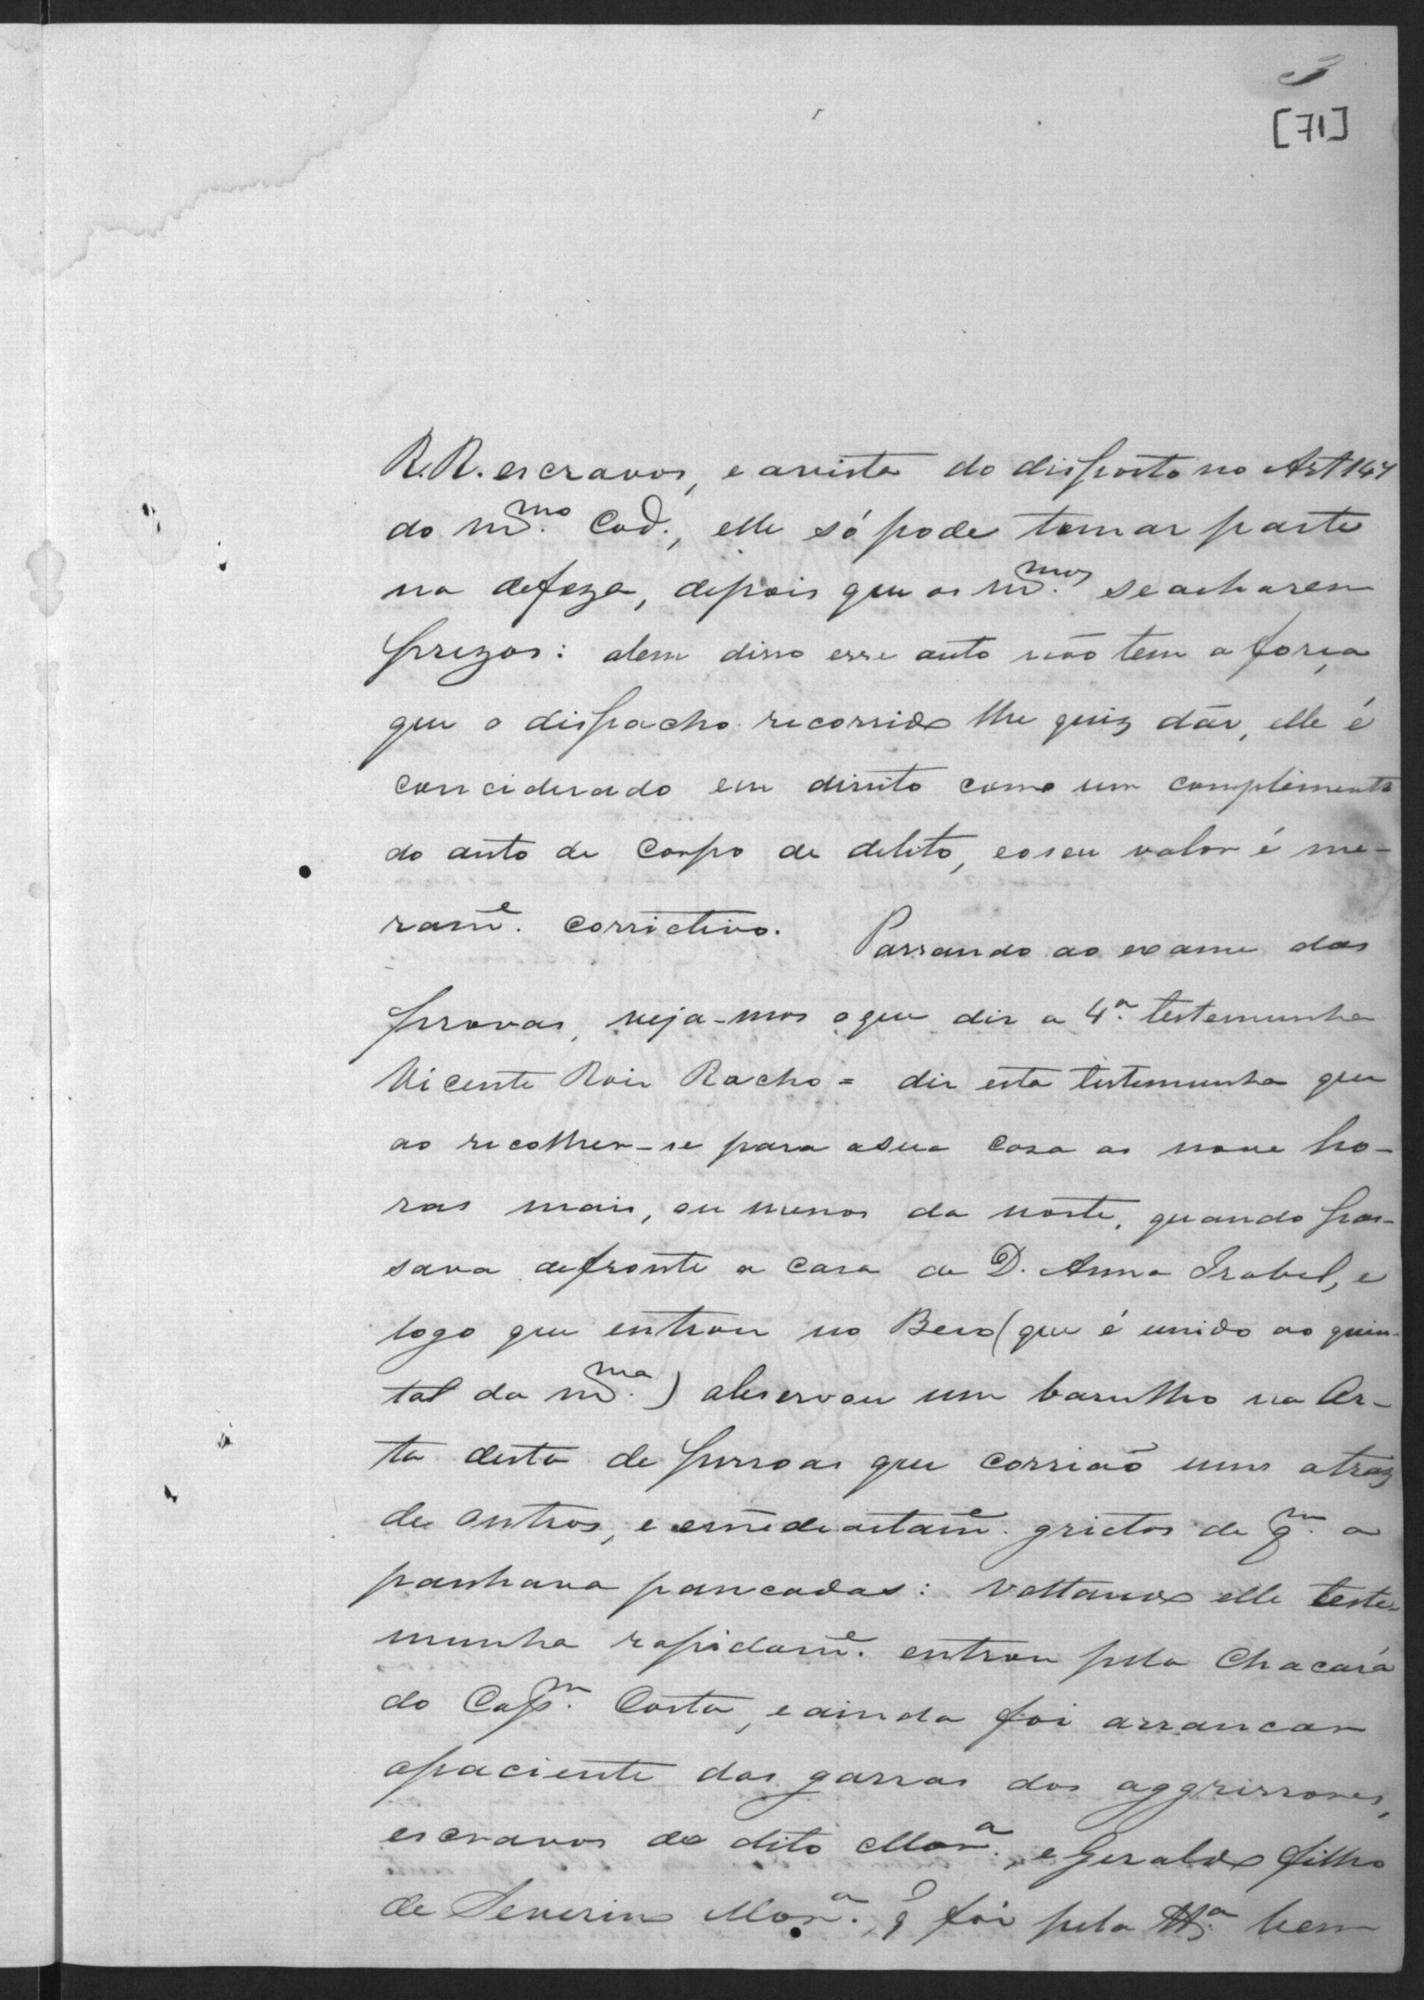 3
[71]
R.R. escravos, e avista do disposto no Art 147
do m.mo Cod., elle só pode tomar parte
na defeza, depois que os m.mos se acharem
prezos: alem disso esse auto não tem a força
que o dispacho recorrido lhe quiz dár, elle é
conciderado em direito como um complimento
do auto de corpo de delito, eoseu valor é me-
ram.e corrictivo. Passando ao exame das
provas, veja-mos oque dis a 4.a testemunha
Vicente Rois Racho = dis esta testemunha que
ao recolher-se para asua casa as nove ho-
ras mais, ou menos da noite, quando pas-
sava defronte a casa de D. Anna Isabel, e
logo que entrou no Beco (que é unido ao quin-
tal da m.ma) observou um barulho na Or-
ta desta de pessoas que corrião uns atraz
de outros, e emediatam.e grictos de q.m a
panhava pancadas: voltando elle teste-
munha rapidam.e entrou pela Chacará
do Cap.m Costa, e ainda foi arrancar
apaciente das garras dos aggrissores,
escravos do dito Mor.a, e Geraldo filho
de Severino Mor.a, q̃ foi pela bem